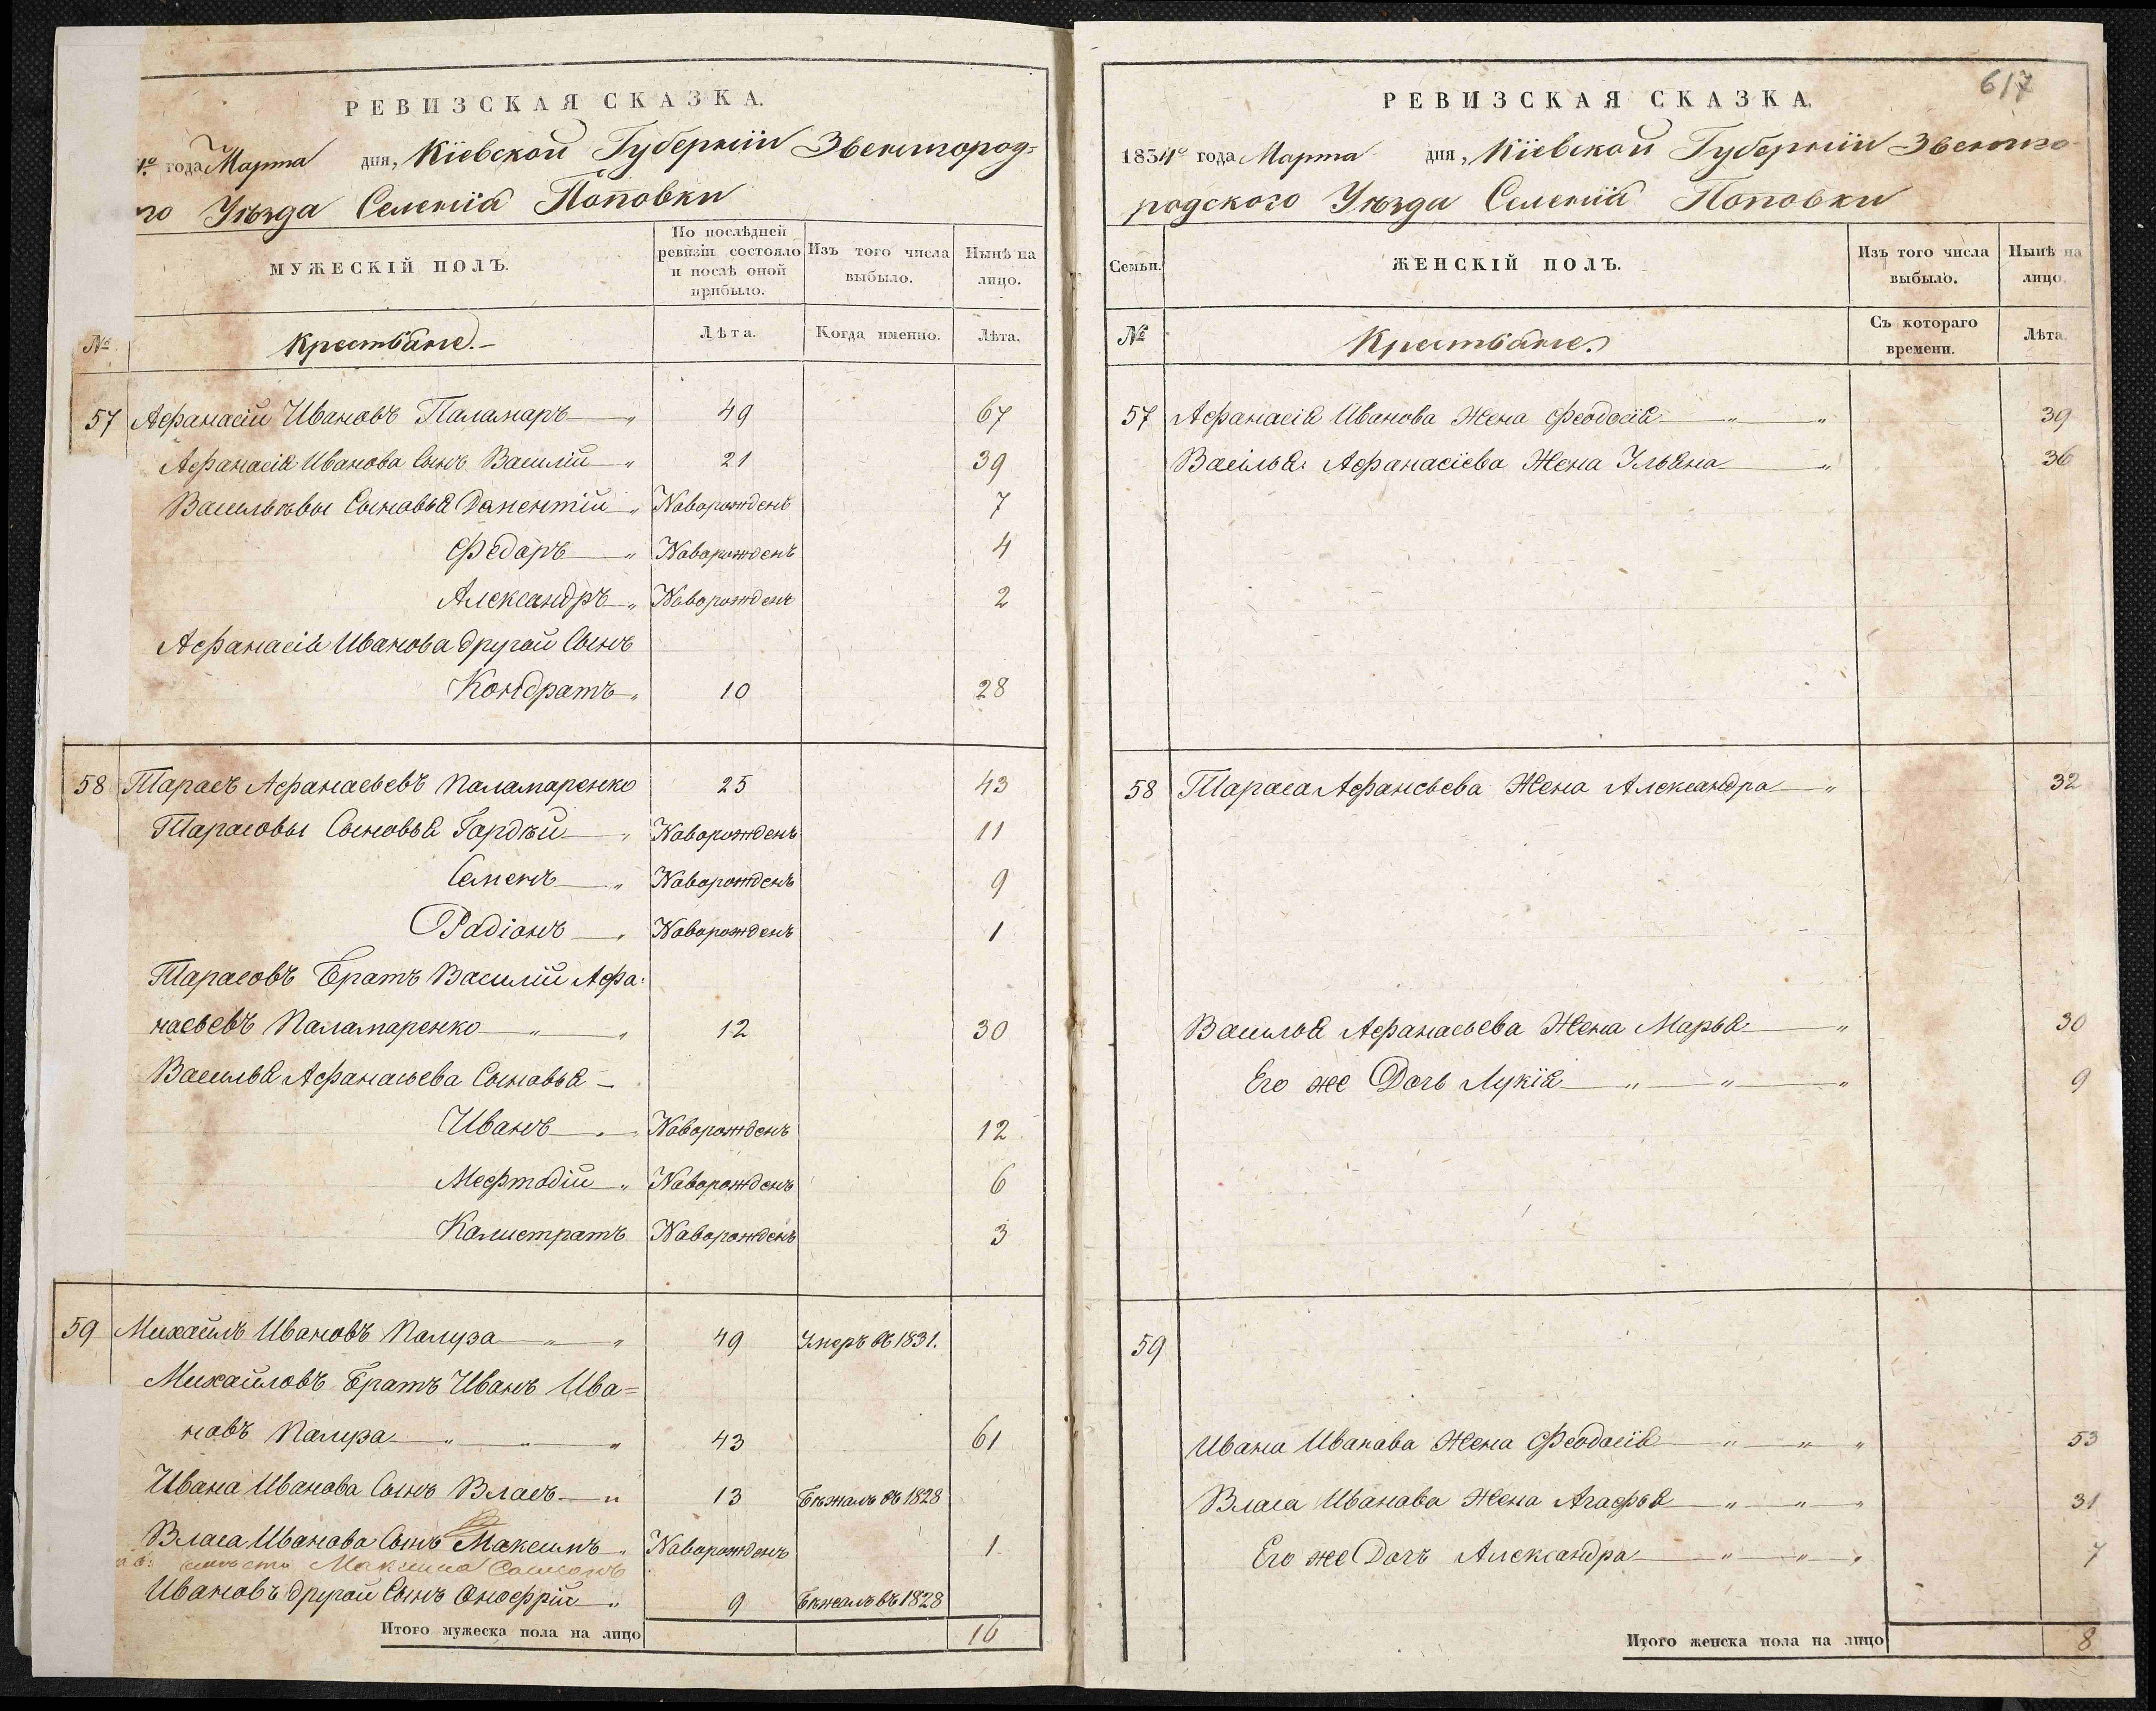 РЕВИЗСКАЯ СКАЗКА.
года Марта дня, Кіевской Губерніи Звенигород=
го Уѣзда Селенія Поповки
МУЖЕСКІЙ ПОЛЪ.
По послѣдней ревизіи состояло и послѣ оной прибыло.
Изъ того числа выбыло.
Нынѣ на лицо.
№ Крестьяне.
Лѣта.
Когда именно.
Лѣта.
57 Афанасій Ивановъ Паламаръ — " 49 67
Афанасія Иванова Сынъ Василій — " 21 39
Васильевы Сыновья Даментій — " Новорожденъ 7
Федоръ — " Новорожденъ 4
Александръ — " Новорожденъ 2
Афанасія Иванова другой Сынъ
Кондратъ — " 10 28
58 Тарасъ Афанасьевъ Паламаренко 25 43
Тарасовы Сыновья Гордѣй — " Новорожденъ 11
Семенъ — " Новорожденъ 9
Радіонъ — " Новорожденъ 1
Тарасовъ Братъ Василій Афа-
насьевъ Паламаренко — " — " 12 30
Василья Афанасьева Сыновья —
Иванъ — " — Новорожденъ 12
Мефтодій — " Новорожденъ 6
Калистратъ Новорожденъ 3
59 Михайлъ Ивановъ Палуза — " — " 49 Умеръ въ 1831.
Михайловъ Братъ Иванъ Ива=
новъ Палуза — " — " — " 43 61
Ивана Иванова Сынъ Власъ — " 13 Бѣжалъ въ 1828
Власа Иванова Сынъ Максимъ " Новорожденъ 1
вмѣсто Максима
Ивановъ другой Сынъ Онофрій — " 9 Бѣжалъ въ 1828
Итого мужеска пола на лицо 16
617
РЕВИЗСКАЯ СКАЗКА.
1834го года Марта дня, Кіевской Губерніи Звениго-
родского Уѣзда Селенія Поповки
Семьи.
ЖЕНСКІЙ ПОЛЪ.
Изъ того числа выбыло.
Нынѣ на лицо.
№ Крестьяне.
Съ котораго времени.
Лѣта.
57 Афанасія Иванова Жена Феодосія — " — " 39
Василья Афанасіева Жена Ульяна — " 36
58 Тараса Афансьева Жена Александра — " 32
Василья Афанасьева Жена Марья — " 30
Его же Дочь Лукія — " — " — " 9
59
Ивана Иванава Жена Феодосія — " — " " 53
Власа Иванава Жена Агафья — " — " — " 31
Его же Дочъ Александра — " — " — " 7
Итого женска пола на лицо 8